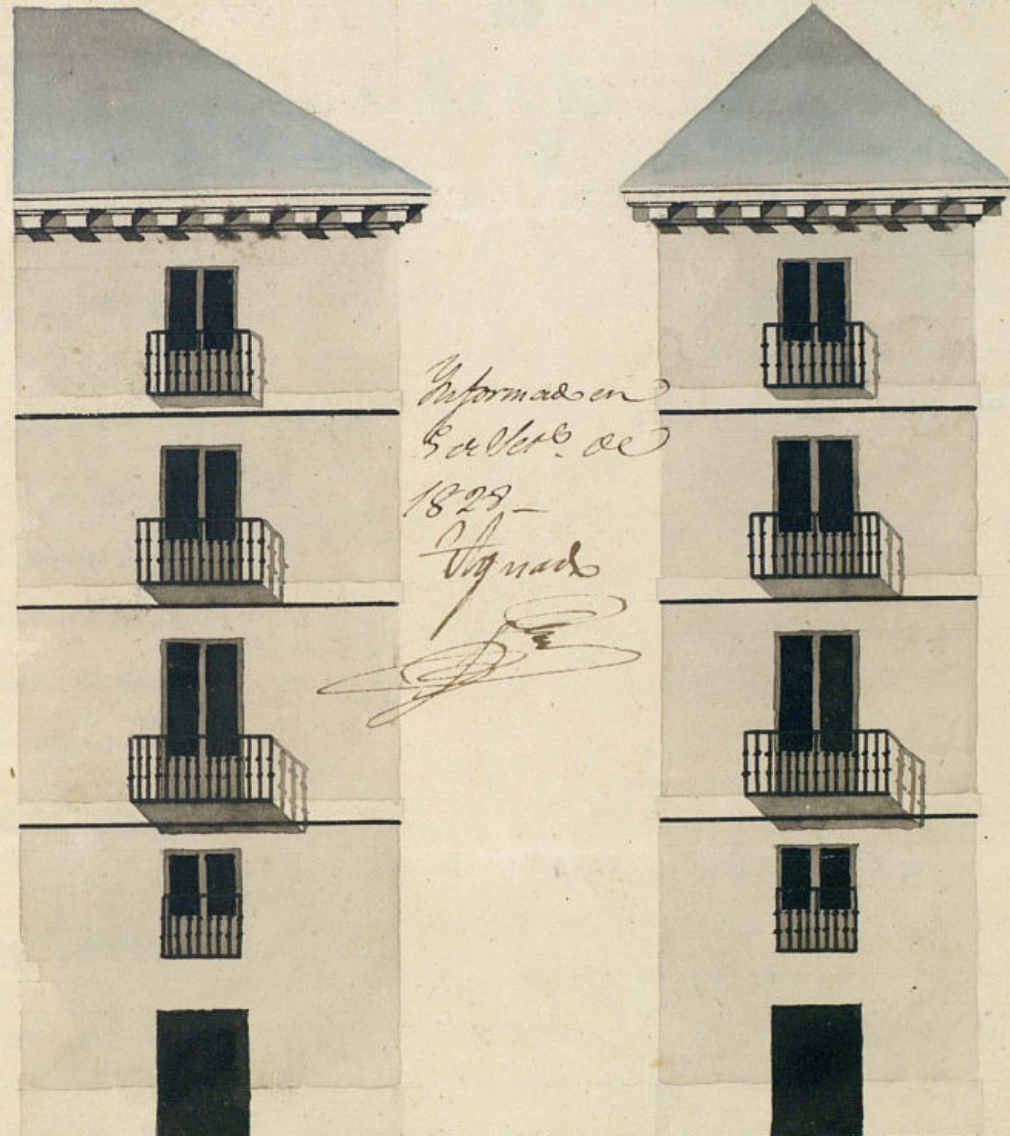 Informado en
5 de Setb.e de
1828–
Aguado